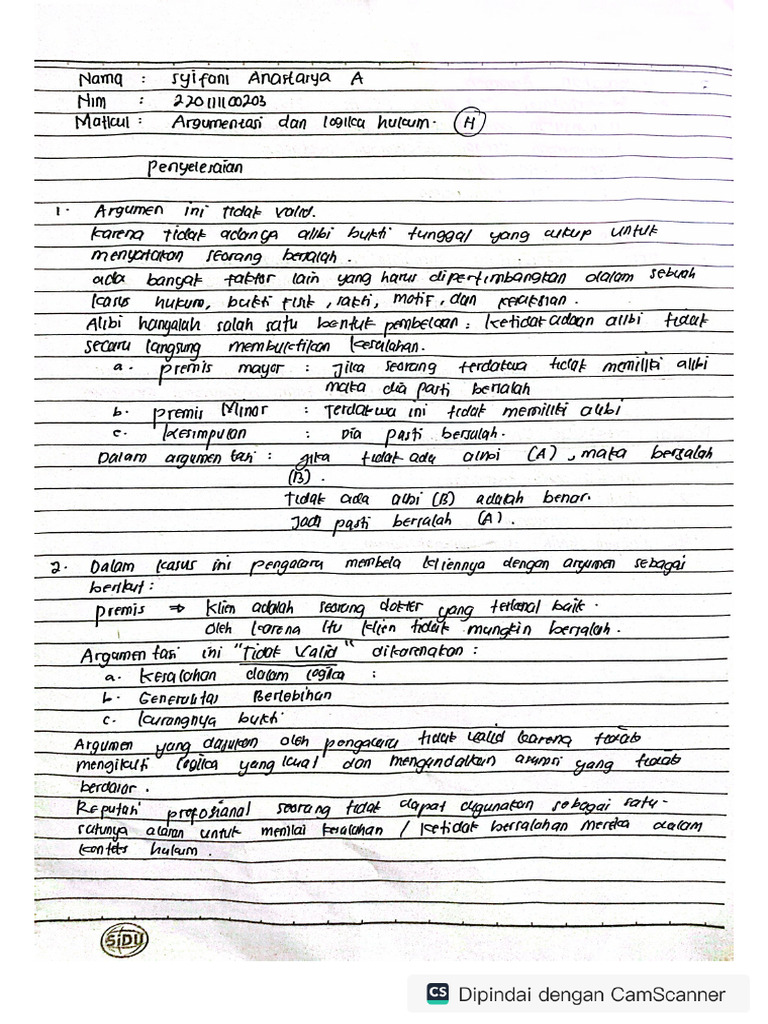 Nama : Syifani Anastasya A
Nim : 220111100203
Matkul : Argumentasi dan logika hukum. (H)
Penyelesaian
1. Argumen ini tidak valid.
karena tidak adanya alibi bukti tunggal yang cukup untuk
menyatakan seorang bersalah.
ada banyak faktor lain yang harus dipertimbangkan dalam sebuah
kasus hukum, bukti fisik, saksi, motif, dan kesaksian.
Alibi hanyalah salah satu bentuk pembelaan : ketidakadaan alibi tidak
secara langsung membuktikan kesalahan.
a. premis mayor : Jika seorang terdakwa tidak memiliki alibi
maka dia pasti bersalah
b. premis Minor : Terdakwa ini tidak memiliki alibi
c. kesimpulan : Dia pasti bersalah.
Dalam argumentasi : jika tidak ada alibi (A), maka bersalah
(B).
Tidak ada alibi (B) adalah benar.
Jadi pasti bersalah (A).
2. Dalam kasus ini pengacara membela kliennya dengan argumen sebagai
berikut :
premis ⇒ Klien adalah seorang dokter yang terkenal baik.
oleh karena itu klien tidak mungkin bersalah.
Argumentasi ini "Tidak Valid" dikarenakan :
a. Kesalahan dalam logika :
b. Generalitas Berlebihan
c. kurangnya bukti
Argumen yang dajukan oleh pengacara tidak valid karena tidak
mengikuti logika yang kuat dan mengandalkan asumsi yang tidak
berdasar.
Reputasi profosianal seorang tidak dapat digunakan sebagai satu-
satunya alasan untuk menilai kesalahan / ketidak bersalahan mereka dalam
konteks hukum.
SiDU
CS Dipindai dengan CamScanner